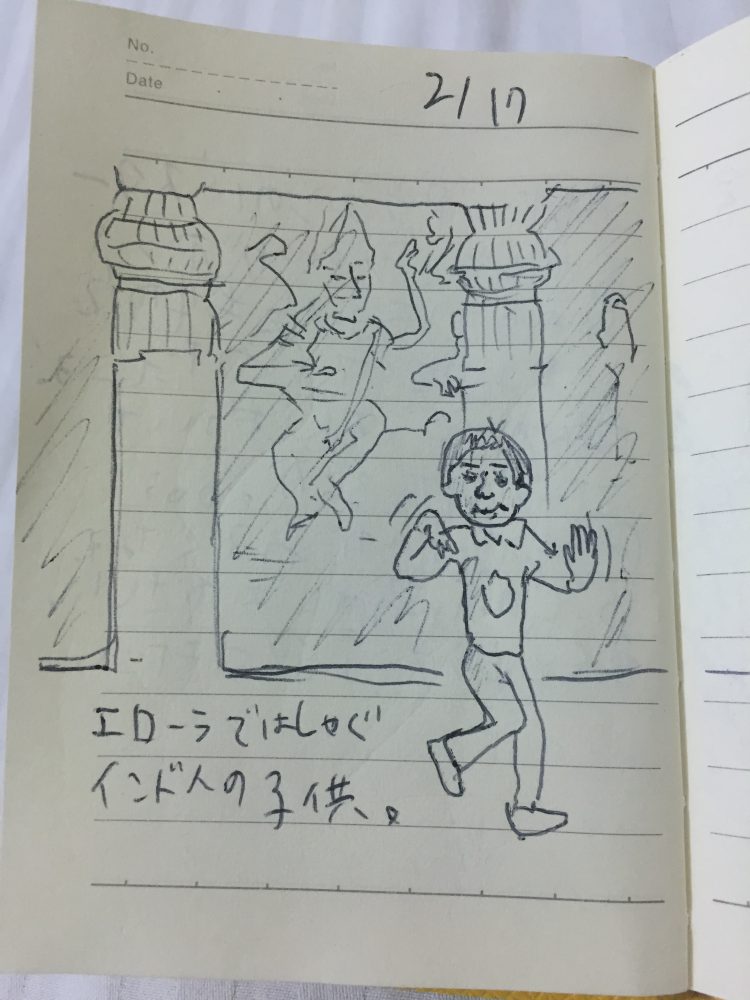 No.
Date
2/17
エローラではしゃぐ
インド人の子供。